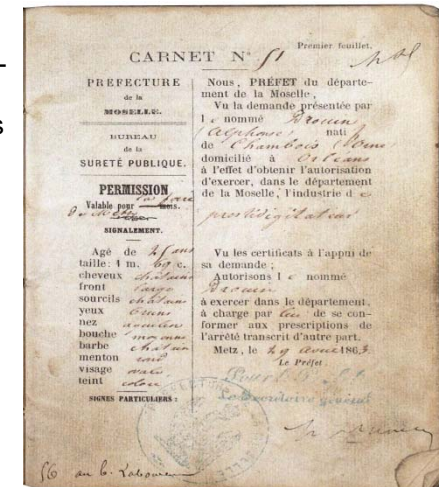 -
s
CARNET N° 51
Premier feuillet.
PRÉFECTURE
de la
MOSELLE.
BUREAU
de la
SURETÉ PUBLIQUE.
PERMISSION
Valable pour mois.
SIGNALEMENT.
Agé de ans
taille: 1 m. 69 c.
cheveux chatains
front large
sourcils chatains
yeux bruns
nez aquilin
bouche moyenne
barbe chatain
menton rond
visage ovale
teint coloré
SIGNES PARTICULIERS:
Nous, PRÉFET du départe-
ment de la Moselle,
Vu la demande présentée par
l e nommé Drouin
(Alphonse) natif
de Chambois (Orne
domicilié à Orléans
à l'effet d'obtenir l'autorisation
d'exercer, dans le département
de la Moselle, l'industrie d e
prestidigitateur
Vu les certificats à l'appui de
sa demande;
Autorisons l e nommé
Drouin
à exercer dans le département,
à charge par lui de se con-
former aux prescriptions de
l'arrêté transcrit d'autre part.
Metz, le 29 avril 1863.
Le Préfet.
Pour le Préfet
Le Secrétaire général